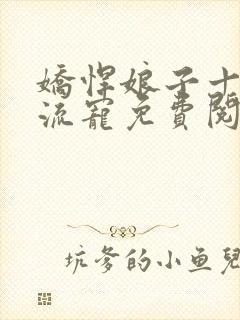 嬌悍娘子十
流寵免費閱
坑爹的小鱼兒